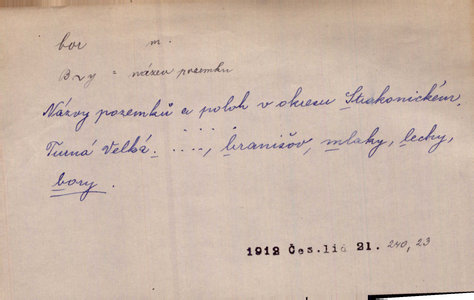 bor m.
Bory = název pozemku
Názvy pozemků a poloh v okresu Strakonickém,
Turná Velká. ...., branišov, mlaky, lecky,
bory.
1912 Čes.lid 21. 240, 23